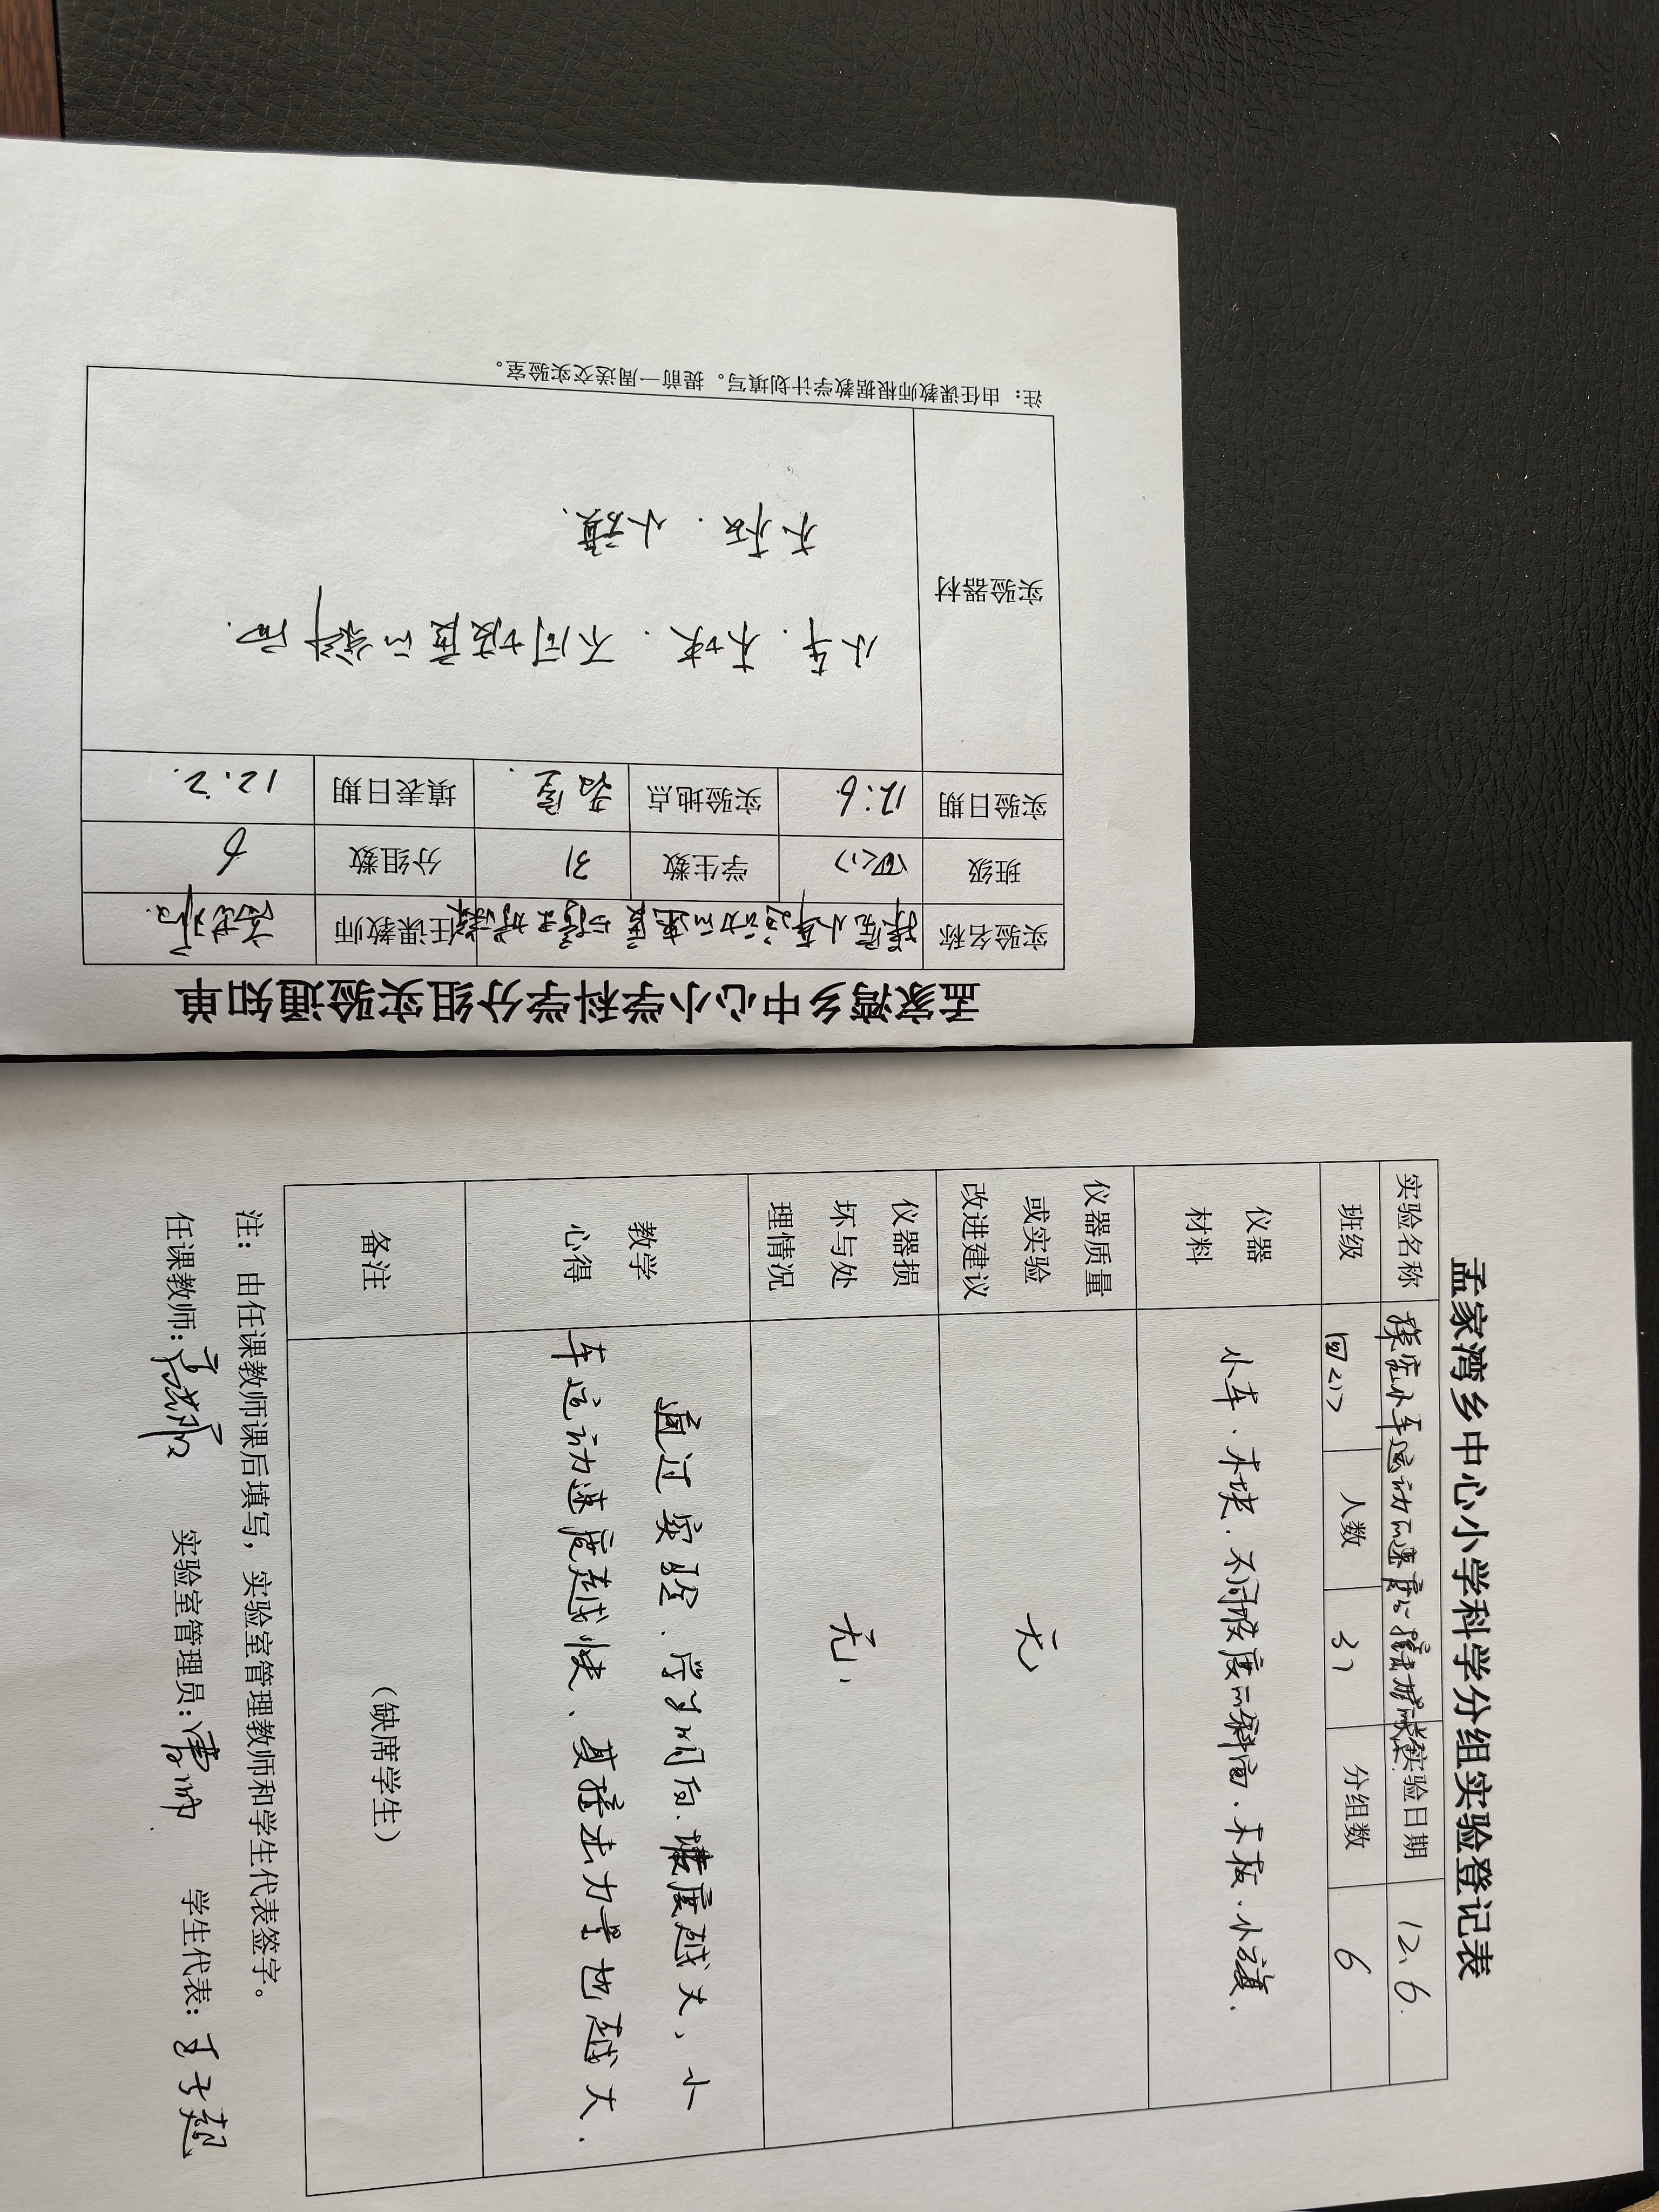 孟家湾乡中心小学科学分组实验通知单
实验名称 探究小车运动的速度与撞击 任课教师
班级 四(1) 学生数 31 分组数 6
实验日期 12.6 实验地点 填表日期 12.2.
实验器材 小车.木块.不同坡度的斜面.
木板.小旗.
注：由任课教师根据教学计划填写。提前一周送交实验室。
孟家湾乡中心小学科学分组实验登记表
实验名称 探究小车运动的速度与撞击 实验日期 12.6.
班级 四(1) 人数 31 分组数 6
仪器材料 小车.木块.不同坡度的斜面.木板.小旗.
仪器质量或实验改进建议 无
仪器损坏与处理情况 无.
教学心得 通过实验.学生明白.坡度越大,小
车运动速度越快、其撞击力量也越大.
备注 （缺席学生）
注：由任课教师课后填写，实验室管理教师和学生代表签字。
任课教师: 实验室管理员: 学生代表: